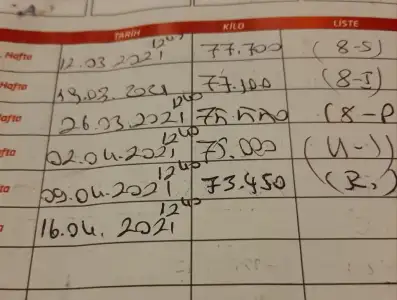 TARİH KİLO LİSTE
Hafta 12.03.2021 12:40 77.700 (8-S)
Hafta 19.03.2021 77.100 (8-I)
afta 26.03.2021 12:40 (8-P
fta 02.04.2021 12:40 75.000
ta 09.04.2021 12:40 73.450
16.04.2021 12:40